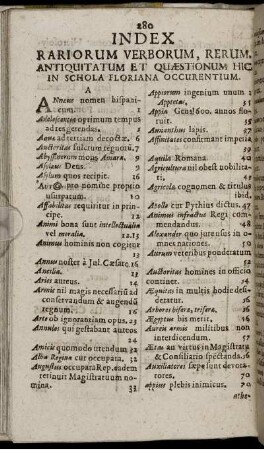 280
INDEX
RARIORUM VERBORUM, RERUM,
ANTIQUITATUM ET QUÆSTIONUM HIC
IN SCHOLA FLORIANA OCCURENTIUM.
A
ANnæus nomen hispani-
cum. 1
Adolescentes optimum tempus
ad res gerendas. 1
Anus ad etiam decoctæ. 6
Auctoritas fulcium regni. 7
mons Amara. 9
Asylum Deus.
Asylum quos recipit. 16
pro nomine proprio
usurpatum. 10
Affabilitas requiritur in prin-
cipe. 12
Animi bona sunt intellectualia
vel moralia. 12.13
Animum hominis non cogitur
13
Annus noster à Jul. Cæsare. 16
Ancilia.
Aries aureus. 14
Armis nil magis necessariū ad
conservandum & augendū
regnum. 16
Arte ob ignorantiam opus. 23
Annulus qui gestabant aureos
24
Amicis quomodo utendum 32
Alba Regina cur occupata. 32
Augustus occupata Rep. eadem
retinuit Magistratuum no-
mina. 33
Appiorum ingenium unum
Appietas. 35
Appia Gens 1600. annos flo-
ruit. 35
Amianthus lapis. 37
Affinitates confirmant imperia
39
Aquila Romana. 40
Agricultura nil obest nobilita-
ti. 46
Agricola cognomen & titulus
ibid.
Apollo cur Pythius dictus. 47
Animus infractus Regi com-
mendandus. 48
Alexander quo jure usus in o-
mnes nationes. 50
Aurum veteribus ponderatum
Auctoritas homines in officio
continet. 54
Æquitas in multis hodie desi-
deratur. 56
Arbores bifera, trifera. 56
Ægyptus bis metit. 56
Aureis armis militibus non
interdicendum. 57
Ætas an virtus in Magistratu
& Consiliario spectanda. 56
Auxiliatores sæpe sunt devora-
tores. 70
Appius plebis inimicus. 70
athe-